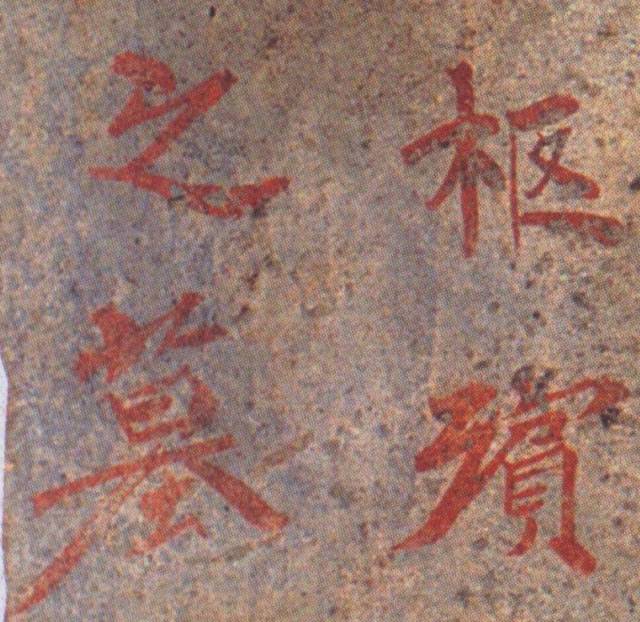 柩殯
之墓